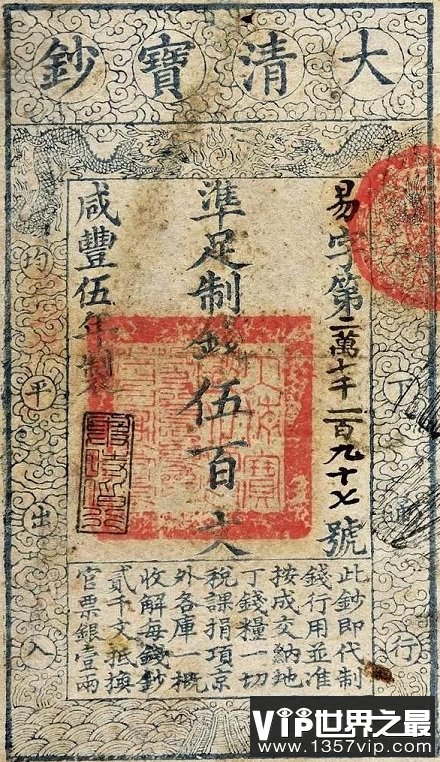 大清寶鈔
下通行
易字第二萬七千一百九十七號
準足制錢伍百文
咸豐伍年製
均平出入
此鈔即代制
錢行用並准
按成交納地
丁錢糧一切
稅課捐項京
外各庫一概
收解每錢鈔
貳千文抵換
官票銀壹兩
VIP世界之最
www.1357vip.com